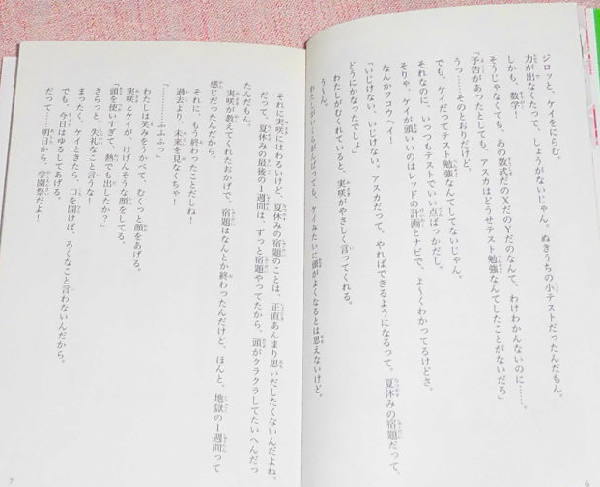 ジロッと、ケイをにらむ。
力が出なくたって、しょうがないじゃん。ぬきうちの小テストだったんだもん。
しかも、数学!
そうじゃなくても、あの数式だのXだのYだのなんて、わけわかんないのに……。
「予告があったとしても、アスカはどうせテスト勉強なんてしたことがないだろ」
うっ……そのとおりだけど。
でも、ケイだってテスト勉強なんてしてないじゃん。
それなのに、いつもテストでいい点ばっかだし。
そりゃ、ケイが頭いいのはレッドの計画とナビで、よ〜くわかってるけどさ。
なんかカッコワイー!
「いじけない、いじけない。アスカだって、やればできるようになるって。夏休みの宿題だって、
どうにかなったでしょ」
わたしがむくれていると、実咲がやさしく言ってくれる。
う〜ん。
わたしがいくらがんばっても、ケイみたいに頭がよくなるとは思えないけど。
6
それに実咲にはわるいけど、夏休みの宿題のことは、正直あんまり思いだしたくないんだよね。
だって、夏休みの最後の1週間は、ずっと宿題やってたから、頭がクラクラしてたいへんだっ
たんだもん。
実咲が教えてくれたおかげで、宿題はなんとか終わったんだけど、ほんと、地獄の1週間って
感じだったんだから。
それに、もう終わったことだしね!
過去より、未来を見なくちゃ!
「………ふふふっ」
わたしは笑みをうかべて、むくっと顔をあげる。
実咲とケイが、けげんそうな顔をしてる。
「頭を使いすぎて、熱でも出したか?」
さらっと、失礼なこと言うな!
まったく、ケイときたら、口を開けば、ろくなこと言わないんだから。
でも、今日はゆるしてあげる。
だって……明日から、学園祭だよ!
7